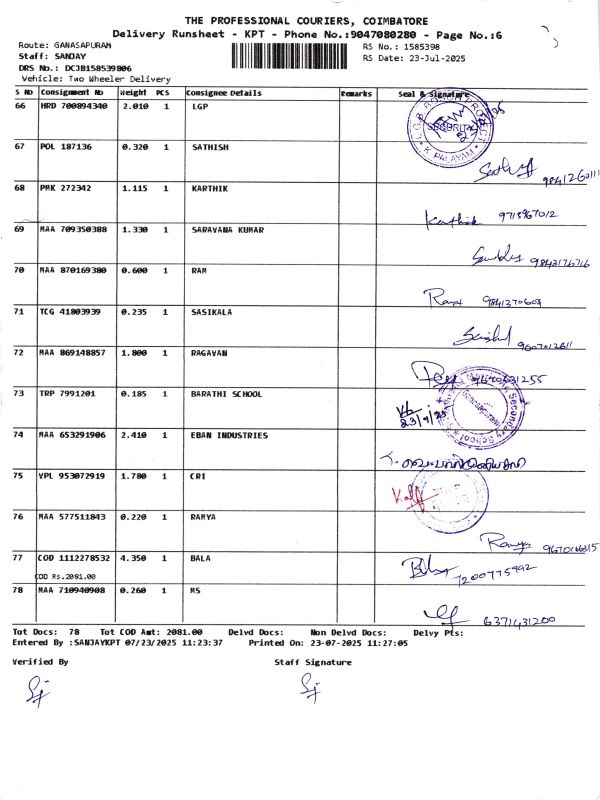 THE PROFESSIONAL COURIERS, COIMBATORE
Delivery Runsheet - KPT - Phone No.:9047080280 - Page No.:6
Route: GANASAPURAM
RS No.: 1585398
Staff: SANJAY
RS Date: 23-Jul-2025
DRS No.: DCJB158539806
Vehicle: Two Wheeler Delivery
S NO Consignment No Weight PCS Consignee Details Remarks Seal & Signature
66 HRD 700894340 2.010 1 LGP
SECURITY
K. PALAYAM
67 POL 187136 0.320 1 SATHISH
68 PMK 272342 1.115 1 KARTHIK
Karthik
69 MAA 709350388 1.330 1 SARAVANA KUMAR
9843176716
70 MAA 870169380 0.600 1 RAM
71 TCG 41803939 0.235 1 SASIKALA
72 MAA 869148857 1.800 1 RAGAVAN
73 TRP 7991201 0.185 1 BARATHI SCHOOL
23/7/25
74 MAA 653291906 2.410 1 EBAN INDUSTRIES
75 VPL 953072919 1.780 1 CRI
76 MAA 577511843 0.220 1 RAMYA
Ramya
77 COD 1112278532 4.350 1 BALA
COD Rs.2081.00
7200775992
78 MAA 710940908 0.260 1 MS
6371431200
Tot Docs: 78 Tot COD Amt: 2081.00 Delvd Docs: Non Delvd Docs: Delvy Pts:
Entered By :SANJAYKPT 07/23/2025 11:23:37 Printed On: 23-07-2025 11:27:05
Verified By Staff Signature